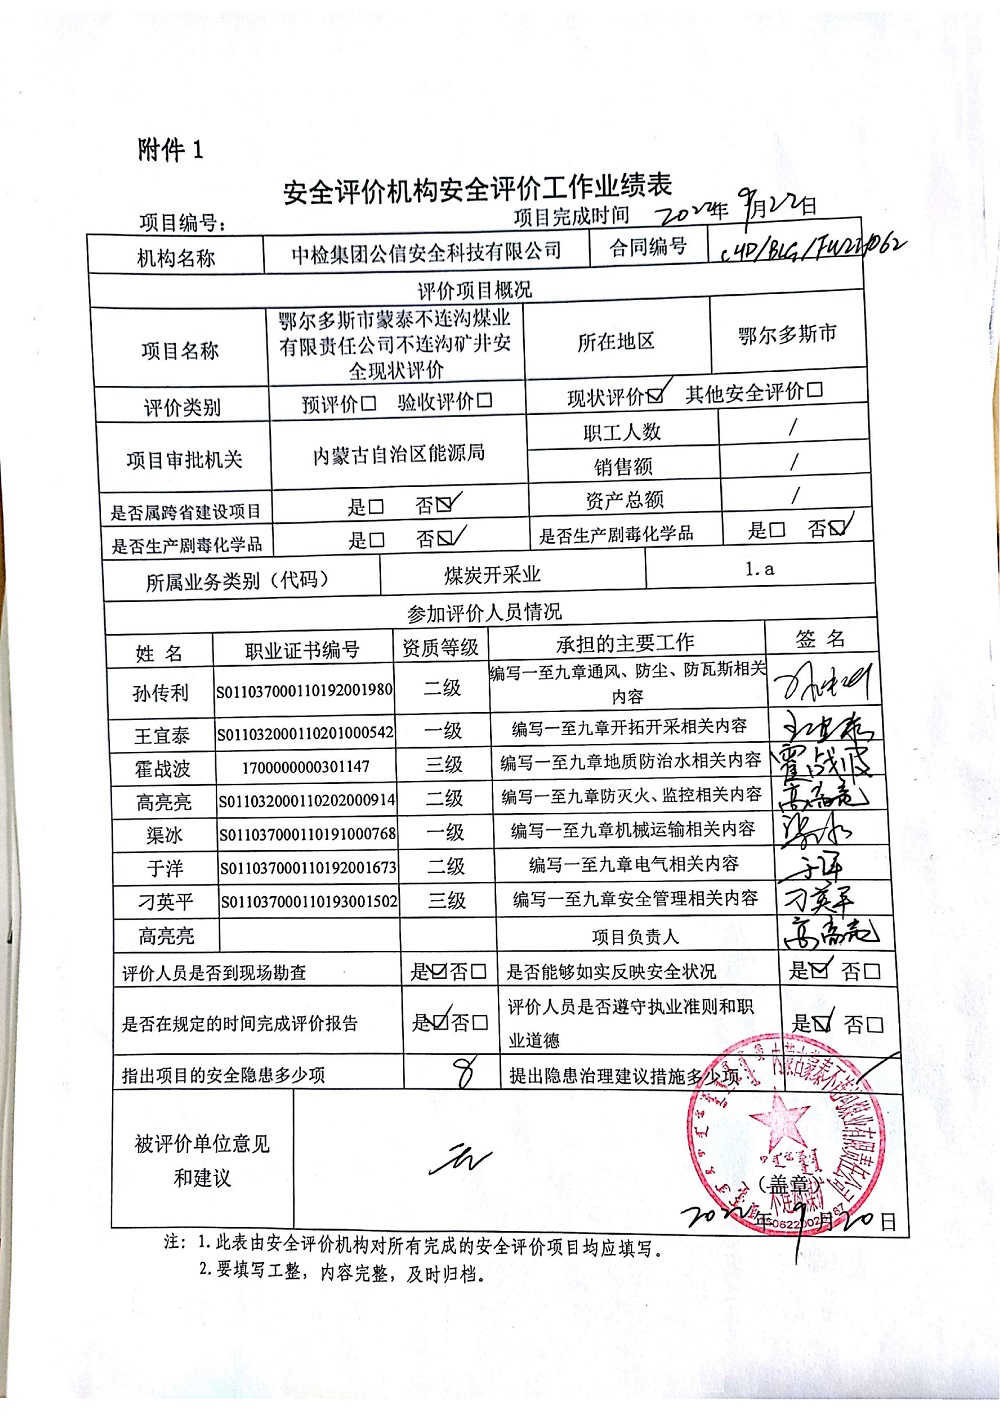 附件 1
安全评价机构安全评价工作业绩表
项目编号： 项目完成时间 2022年 9月22日
机构名称 中检集团公信安全科技有限公司 合同编号
评价项目概况
项目名称 鄂尔多斯市蒙泰不连沟煤业有限责任公司不连沟矿井安全现状评价 所在地区 鄂尔多斯市
评价类别 预评价□ 验收评价□ 现状评价☑ 其他安全评价□
项目审批机关 内蒙古自治区能源局 职工人数 /
销售额 /
是否属跨省建设项目 是□ 否☑ 资产总额 /
是否生产剧毒化学品 是□ 否☑ 是否生产剧毒化学品 是□ 否☑
所属业务类别（代码） 煤炭开采业 1.a
参加评价人员情况
姓 名 职业证书编号 资质等级 承担的主要工作 签 名
孙传利 S011037000110192001980 二级 编写一至九章通风、防尘、防瓦斯相关内容 孙传利
王宜泰 S011032000110201000542 一级 编写一至九章开拓开采相关内容 王宜泰
霍战波 1700000000301147 三级 编写一至九章地质防治水相关内容 霍战波
高亮亮 S011032000110202000914 二级 编写一至九章防灭火、监控相关内容 高亮亮
渠冰 S011037000110191000768 一级 编写一至九章机械运输相关内容 渠冰
于洋 S011037000110192001673 二级 编写一至九章电气相关内容 于洋
刁英平 S011037000110193001502 三级 编写一至九章安全管理相关内容 刁英平
高亮亮 项目负责人 高亮亮
评价人员是否到现场勘查 是☑否□ 是否能够如实反映安全状况 是☑ 否□
是否在规定的时间完成评价报告 是☑否□ 评价人员是否遵守执业准则和职业道德 是☑ 否□
指出项目的安全隐患多少项 8 提出隐患治理建议措施多少项 /
被评价单位意见和建议 无
（盖章）
2022年 9月20日
注：1.此表由安全评价机构对所有完成的安全评价项目均应填写。
2.要填写工整，内容完整，及时归档。